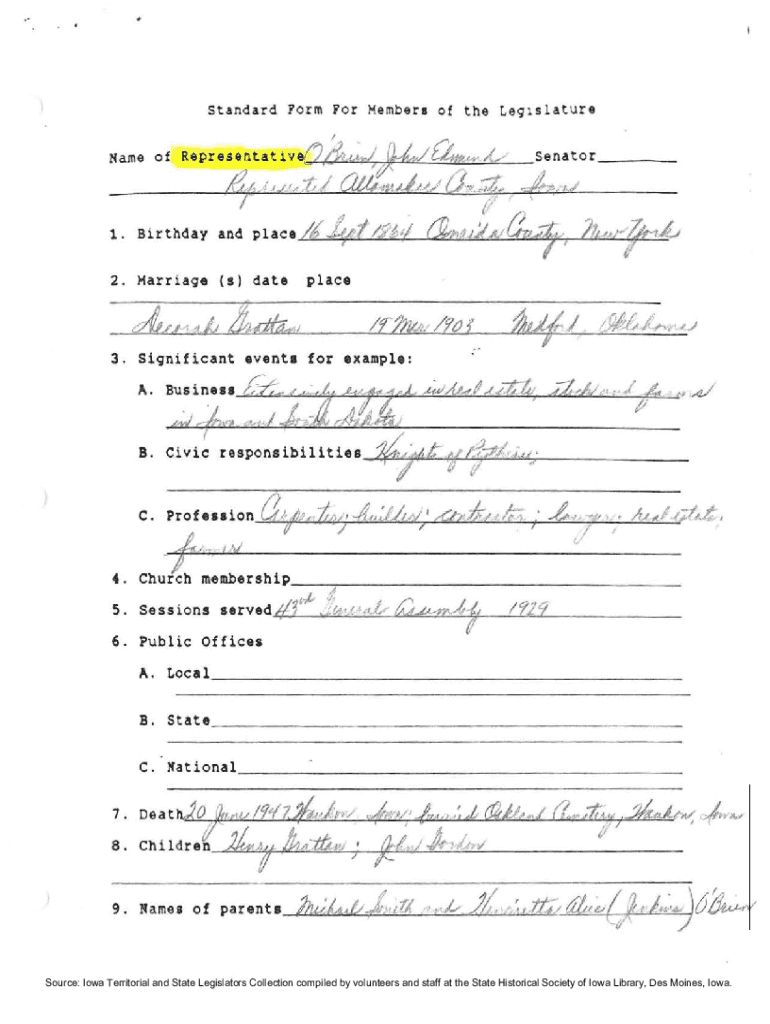 Standard Form For Members of the Legislature
Name of Representative O'Brien, John Edmund Senator
Represented Allamakee County, Iowa
1. Birthday and place 16 Sept 1864 Oneida County, New York
2. Marriage (s) date place
Decorah Grattan 19 Mar 1903 Medford, Oklahoma
3. Significant events for example:
A. Business Extensively engaged in real estate, stock and farms
in Iowa and South Dakota
B. Civic responsibilities Knights of Pythias;
C. Profession Carpenter; builder; contractor; lawyer; real estate;
farmer
4. Church membership
5. Sessions served 43rd General Assembly 1929
6. Public Offices
A. Local
B. State
C. National
7. Death 20 June 1947 Waukon, Iowa; buried Oakland Cemetery, Waukon, Iowa
8. Children Henry Grattan; John Gordon
9. Names of parents Michael Smith and Henrietta Alice (Jenkins) O'Brien
Source: Iowa Territorial and State Legislators Collection compiled by volunteers and staff at the State Historical Society of Iowa Library, Des Moines, Iowa.